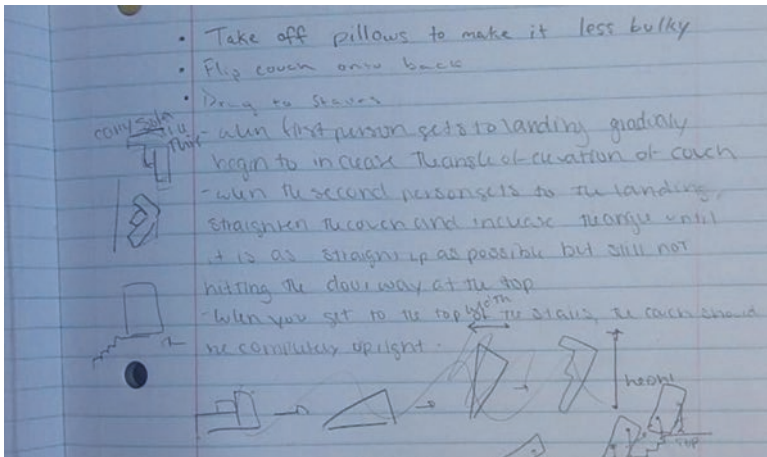 • Take off pillows to make it less bulky
• Flip couch onto back
• Drag to staires
carry sofa
- when first person gets to landing gradualy
begin to increase the angle of elevation of couch
- when the second person gets to the landing,
straighten the couch and increase the angle until
it is as straight up as possible but still not
hitting the doorway at the top
width
- When you get to the top of the stairs, the couch should
be completely upright.
height
TOP